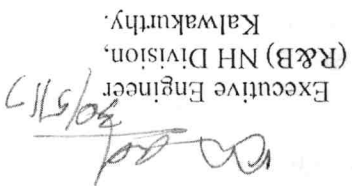 30/5/17
Executive Engineer
(R&B) NH Division,
Kalwakurthy.